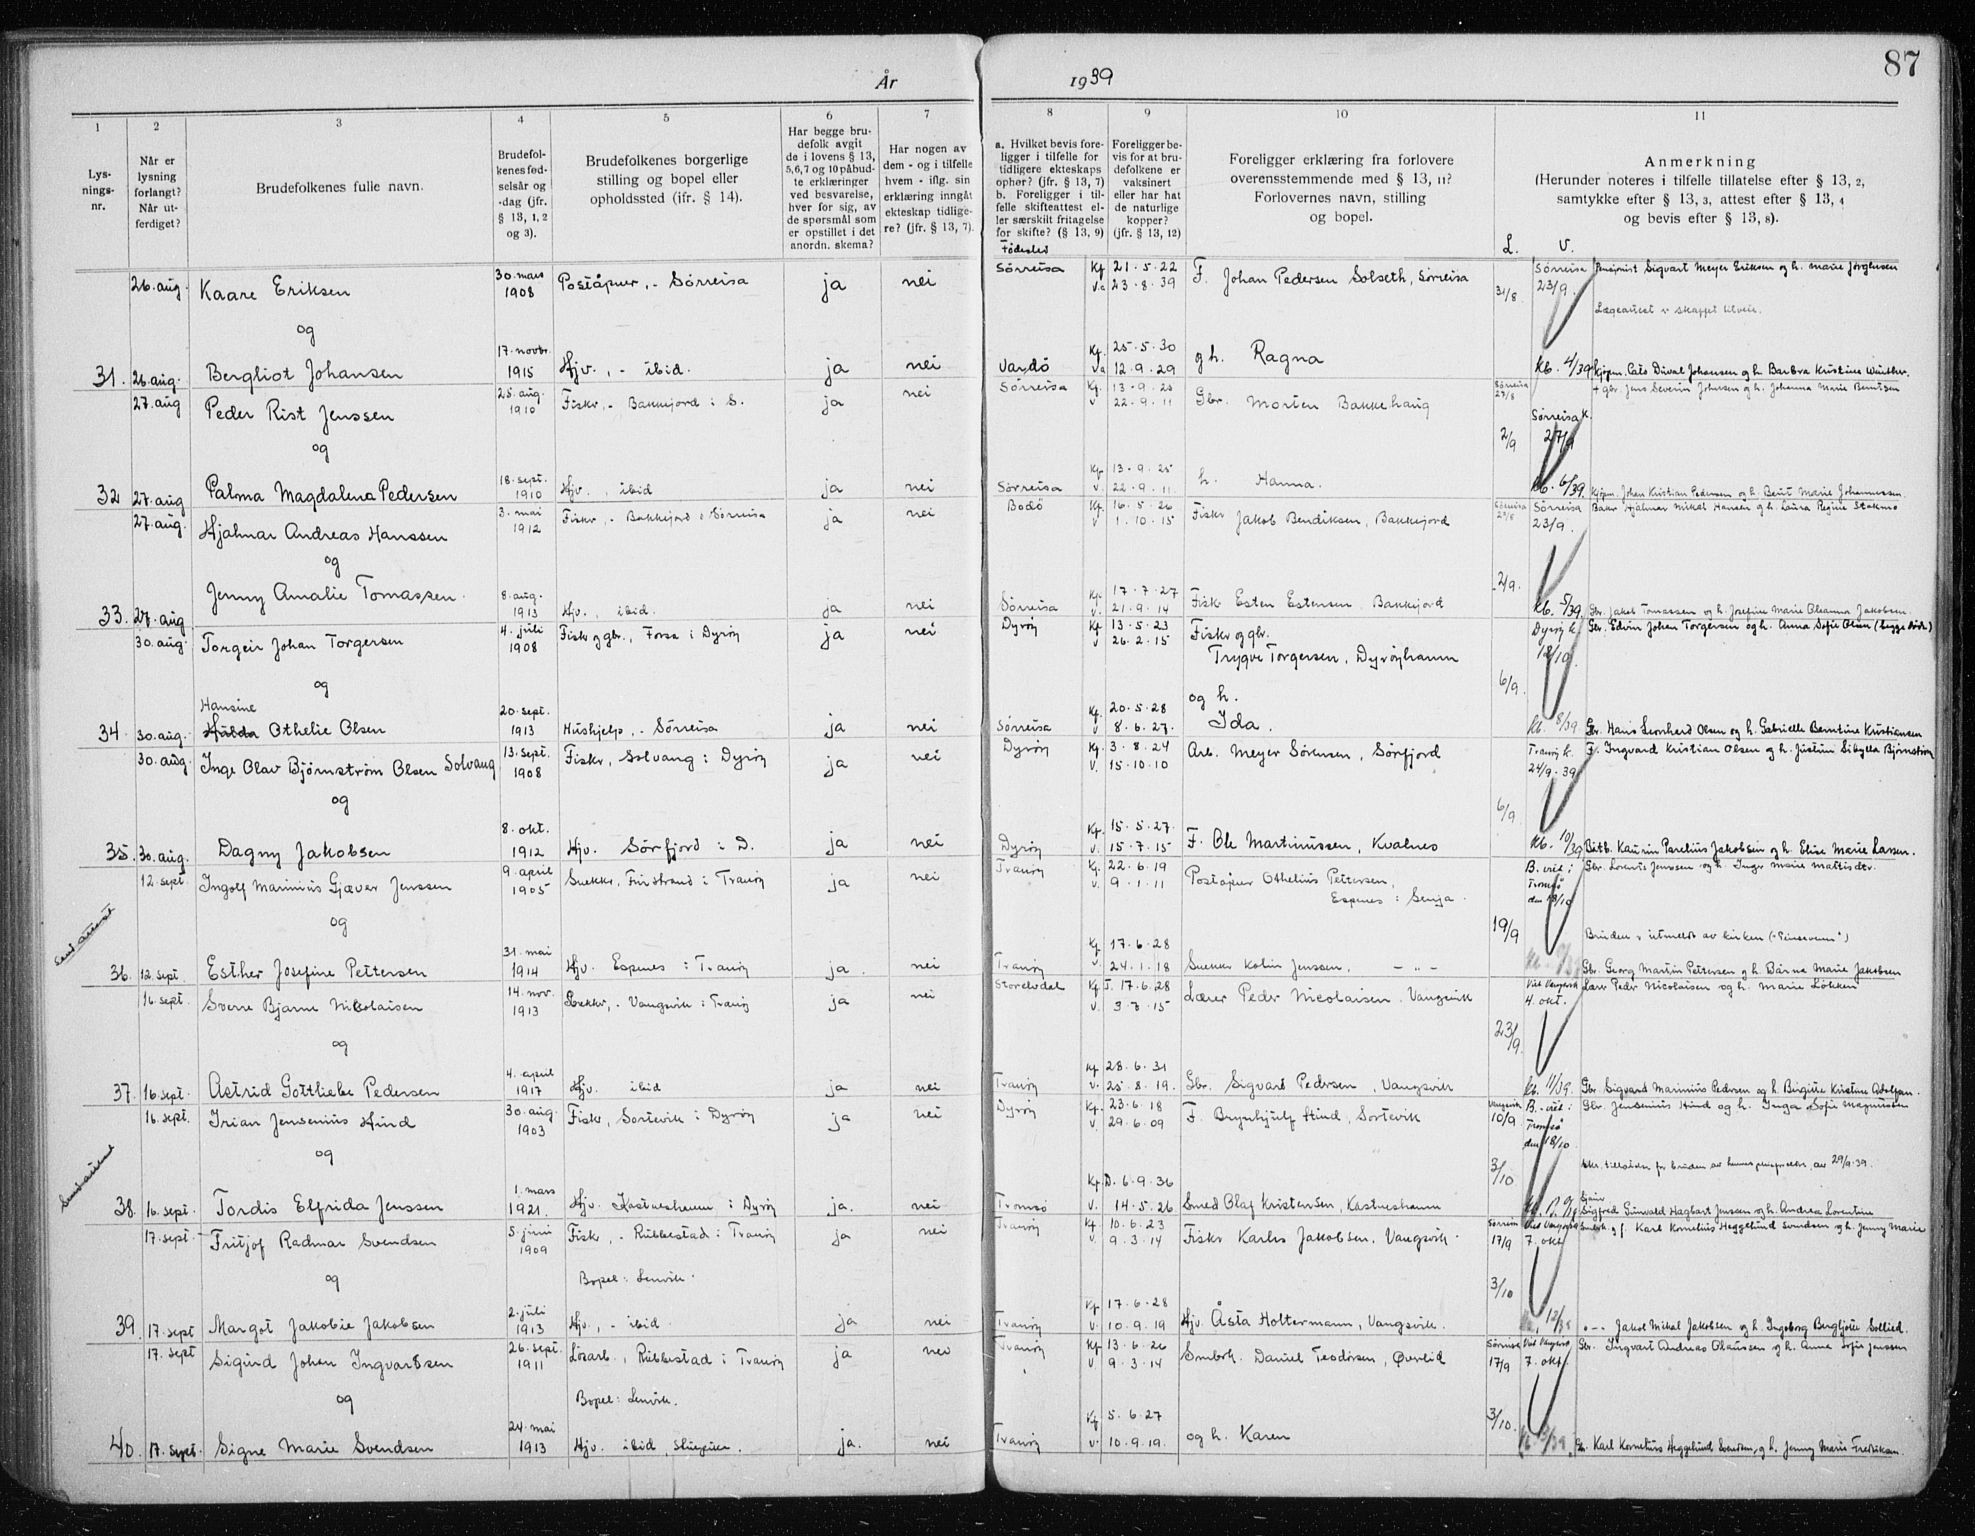 År 1939
87
1 2 3 4 5 6 7 8 9 10 11
Lys-
nings-
nr.
Når er
lysning
forlangt?
Når ut-
ferdiget?
Brudefolkenes fulle navn.
Brudefol-
kenes fød-
selsår og
-dag (jfr.
§ 13, 1, 2
og 3).
Brudefolkenes borgerlige
stilling og bopel eller
opholdssted (ifr. § 14).
Har begge bru-
defolk avgit
de i lovens § 13,
5,6,7 og 10 påbud-
te erklæringer
ved besvarelse,
hver for sig, av
de spørsmål som
er opstillet i det
anordn. skema?
Har nogen av
dem - og i tilfelle
hvem - iflg. sin
erklæring inngåt
ekteskap tidlige-
re? (jfr. § 13, 7).
a. Hvilket bevis fore-
ligger i tilfelle for
tidligere ekteskaps
ophør? (jfr. § 13, 7)
b. Foreligger i til-
felle skifteattest el-
ler særskilt fritagelse
for skifte? (§ 13, 9)
Fødested
Foreligger be-
vis for at bru-
defolkene er
vaksinert
eller har hat
de naturlige
kopper?
(jfr. § 13, 12)
Foreligger erklæring fra forlovere
overensstemmende med § 13, 11?
Forlovernes navn, stilling
og bopel.
Anmerkning
(Herunder noteres i tilfelle tillatelse efter § 13, 2,
samtykke efter § 13, 3, attest efter § 13, 4
og bevis efter § 13, 8).
L. V.
26. aug. Kaare Eriksen 30. mars 1908 Poståpner, - Sørreisa ja nei Sørreisa Kf. 21.5.22 V. 23.8.39 F. Johan Pedersen Solseth, Sørreisa 31/8 Sørreisa 23/9. Pensjonist Sigvart Meyer Eriksen og h. Marie Jørgensen
Lægeattest
og
31. 26. aug. Bergliot Johansen 17. novbr. 1915 Hjv., - ibid. ja nei Vardö Kf. 25.5.30 Va 12.9.29 g h. Ragna Kb. 4/39 Kjøpm. Johansen og h. Barbra Kristine
27. aug Peder Rist Jenssen 25. aug. 1910 Fiskr, - Bakkejord i S. ja nei Sørreisa Kf. 13.9.25 V 22.9.11 Gbr. Morten Bakkehaug Sørreisa 27/8 2/9 Sørreisa k. 27/9 + gbr. Jens Severin Johnsen og h. Johanna Marie Berntsen
og
32 27. aug Palma Magdalena Pedersen 18. sept. 1910 Hjv., ibid ja nei Sørreisa Kf. 13.9.25 V. 22.9.11. h. Hanna. Kb. 6/39. Kjøpm. Johan Kristian Pedersen og h. Berit Marie Johannessen.
27. aug. Hjalmar Andreas Hanssen 3. mai 1912 Fiskr, - Bakkejord i Sørreisa ja nei Bodö Kf. 16.5.26 V. 1.10.15 Fiskr Jakob Bendiksen, Bakkejord Sørreisa 2/9. Sørreisa 23/9. Bakr Hjalmar Mikal Hansen og h. Laura Regine
og
33. 27. aug Jenny Amalie Tomassen. 8. aug. 1913 Hjv., ibid. ja nei Sørreisa Kf. 17.7.27 V. 21.9.14 Fiskr Esten Estensen, Bakkejord Kb. 5/39 Gbr. Jakob Tomassen og h. Josefine Marie Oleanna Jakobsen.
30. aug. Torgeir Johan Torgersen 4. juli 1908 Fiskr og gbr., Forsa i Dyrøy ja nei Dyrøy Kf. 13.5.23 V 26.2.15 Fiskr og gbr. Trygve Torgersen, Dyrøyhamn 6/9. Dyrøy k. 18/10 Gbr. Edvin Johan Torgersen og h. Anna Sofie Olsen (begge døde)
og
34 30. aug. Hansine Hulda Othelie Olsen 20. sept. 1913 Hushjelp, - Sørreisa ja nei Sørreisa Kf. 20.5.28 V 8.6.27. og h. Ida. Kb. 8/39 Gbr. Hans Leonhard Olsen og h. Gabrielle Berntine Kristiansen
30. aug Inge Olav Bjørnström Olsen Solvang 13. sept. 1908 Fiskr, Solvang i Dyrøy ja nei Dyrøy Kf. 3.8.24 V. 15.10.10 Arb. Meyer Sörensen, Sörfjord 6/9. Tranøy k. 24/9. 39 F. Ingvard Kristian Olsen og h. Justine Sibylla Bjørnström
og
35. 30. aug. Dagny Jakobsen 8. okt. 1912 Hjv. Sörfjord i D. ja nei Dyrøy Kf. 15.5.27. V. 15.7.15 F. Ole Martinussen, Kvalnes Kb. 10/39 Båtb. Kaurin Parelius Jakobsen og h. Elise Marie Larsen.
12. sept. Ingolf Marinius Gjæver Jenssen 9. april 1905 Snekkr, Finstrand i Tranøy ja nei Tranøy Kf. 22.6.19 V. 9.1.11 Poståpner Othelius Pettersen, Espenes i Senja. 19/9 B. viet i Tromsö den 18/10 Gbr. Lorents Jenssen og h. Inger Marie Mattisdtr.
Send attest og
Bruden er utmeldt av kirken ("Pinsevenn")
36. 12. sept. Esther Josefine Pettersen 31. mai 1914 Hjv. Espenes i Tranøy ja. nei Tranøy Kf. 17.6.28 V. 24.1.18 Snekkr Kolin Jenssen, - " - Gbr. Georg Martin Pettersen og h. Bårna Marie Jakobsen
16. sept. Sverre Bjarne Nikolaisen 14. nov. 1913 Lekkr, - Vangsvik i Tranøy ja nei Storelvdal Kf. 17.6.28 V. 3.7.15 Lærer Peder Nicolaisen, Vangsvik 23/9. Viet Vangsvik 4. okt. Lærer Peder Nicolaisen og h. Marie Lökken
og
37. 16. sept. Astrid Gottliebe Pedersen 4. april 1917 Hjv. ibid ja nei Tranøy Kf. 28.6.31 V. 25.8.19. Gbr. Sigvart Pedersen, Vangsvik Kb. 11/39. Gbr Sigvard Marinius Pedersen og h. Birgitte Kristine
16. sept. Irian Jensenius Hind 30. aug. 1903 Fiskr, Sortevik i Dyrøy ja nei Dyrøy Kf. 23.6.18 V. 29.6.09 F. Brynhjulf Hind, Sortevik Vangsvik 10/9. B. - viet i Tromsö den 18/10 Gbr. Jensenius Hind og h. Inga Sofie Magnussen
Send attest og 3/10
for bruden av 29/9.39.
38. 16. sept. Tordis Elfrida Jenssen 1. mars 1921. Hjv. Kastneshamn i Dyrøy ja. nei. Tromsö Kf D. 6.9.36 V. 14.5.26 Smed Olaf Kristensen, Kastneshamn Sigfred Gunvald Hagbart Jenssen og h. Andrea Lorentine
17. sept. Fritjof Radmar Svendsen 5. juni 1909 Fiskr, - Rubbestad i Tranøy ja nei Tranøy Kf 10.6.23 V. 9.3.14 Fiskr Karles Jakobsen. Vangsvik. Sørreisa 17/9 Viet Vangsvik 7. okt Småbrk. og f. Karl Kornelius Heggelund Svendsen og h. Jenny Marie
og Bopel: Lenvik. 3/10
39. 17. sept Margot Jakobie Jakobsen 2. juli 1913 Hjv., - ibid. ja nei Tranøy Kf 17.6.28 V. 10.9.19 Hjv. Åsta Holtermann, Vangsvik. Jakob Mikal Jakobsen og h. Ingeborg Bergljote Sollied.
17. sept Sigurd Johan Ingvartsen 26. sept. 1911 Lösarb., Rubbestad i Tranøy ja nei Tranøy Kf 13.6.26 V. 9.3.14 Småbrk. Daniel Teodorsen, Øverlid Sørreisa 17/9 Viet Vangsvik 7. okt. Gbr. Ingvart Andreas Olaussen og h. Anna Sofie Jenssen
og Bopel: Lenvik. 3/10.
40. 17. sept. Signe Marie Svendsen 24. mai 1913 Hjv. ibid, ja. nei Tranøy Kf 5.6.27 V. 10.9.19. og h. Karen Gbr. Karl Kornelius Heggelund Svendsen, og h. Jenny Marie Fredriksen.